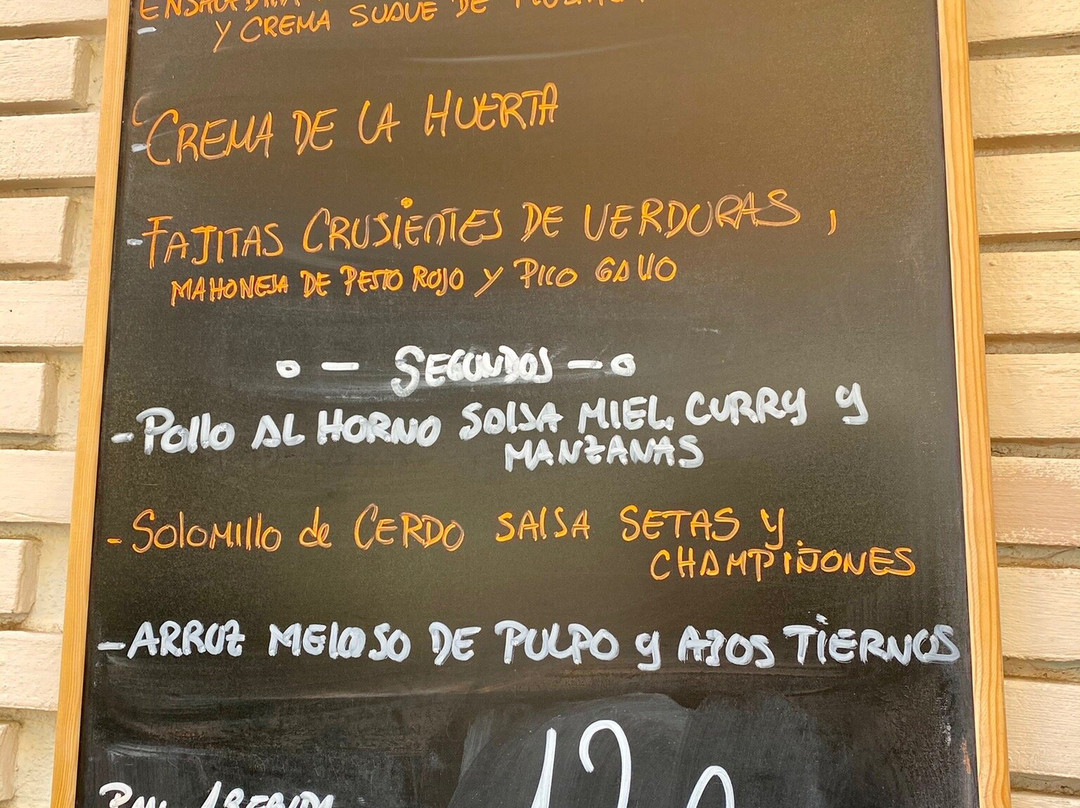 Y CREMA SUAVE DE
- CREMA DE LA HUERTA
- FAJITAS CRUSIENTES DE VERDURAS,
MAHONESA DE PESTO ROJO Y PICO GALLO
SEGUNDOS
- POLLO AL HORNO SALSA MIEL, CURRY Y
MANZANAS
- SOLOMILLO de CERDO SALSA SETAS Y
CHAMPIÑONES
- ARROZ MELOSO DE PULPO Y AJOS TIERNOS
12